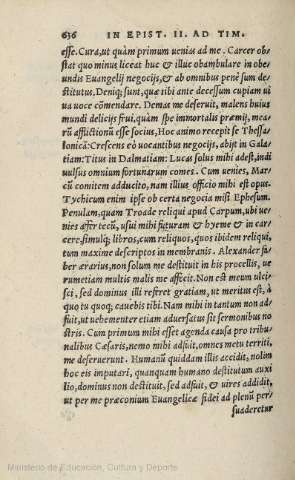 636 IN EPIST. II. AD TIM.
esse. Cura, ut quàm primum uenias ad me. Carcer ob-
stat quo minus liceat huc & illuc obambulare in obe-
undis Euangelij negocijs, & ab omnibus penè sum de-
stitutus. Deniq; sunt, quæ tibi ante decessum cupiam ui
ua uoce cōmendare. Demas me deseruit, malens huius
mundi delicijs frui, quàm spe immortalis præmij, mea-
rū afflictionū esse socius, Hoc animo recepit se Thessa-
lonicā: Crescens eò uocantibus negocijs, abijt in Gala-
tiam: Titus in Dalmatiam: Lucas solus mihi adest, indi
uulsus omnium fortunarum comes. Cum uenies, Mar-
cū comitem adducito, nam illius officio mihi est opus.
Tychicum enim ipse ob certa negocia misi Ephesum.
Penulam, quam Troade reliqui apud Carpum, ubi ue-
nies affer tecū, usui mihi futuram & hyeme & in car-
cere, simulq; libros, cum reliquos, quos ibidem reliqui,
tum maxime descriptos in membranis. Alexander fa-
ber ærarius, non solum me destituit in his procellis, ue
rumetiam multis malis me affecit. Non est meum ulci-
sci, sed dominus illi referet gratiam, ut meritus est, à
quo tu quoq; cauebis tibi. Nam mihi in tantum non ad-
fuit, ut uehementer etiam aduersatus sit sermonibus no
stris. Cum primum mihi esset agenda causa pro tribu-
nalibus Cæsaris, nemo mihi adfuit, omnes metu territi,
me deseruerunt. Humanū quiddam illis accidit, nolim
hoc eis imputari, quanquam humano destitutum auxi
lio, dominus non destituit, sed adfuit, & uires addidit,
ut per me præconium Euangelicæ fidei ad plenū per-
suaderetur
Ministerio de Educación, Cultura y Deporte